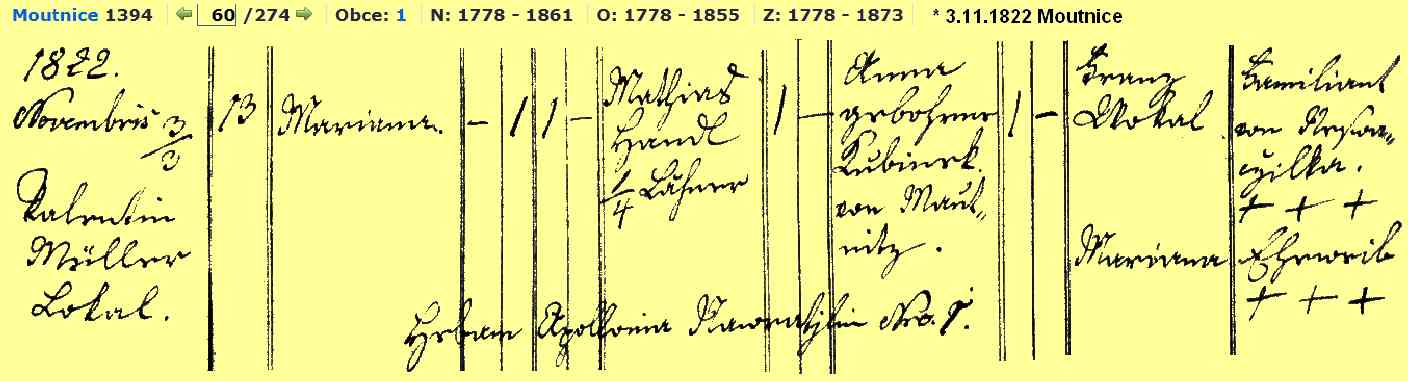 Moutnice 1394 60 /274 Obce: 1 N: 1778 - 1861 O: 1778 - 1855 Z: 1778 - 1873 * 3.11.1822 Moutnice
1822.
Novembris 3/3
Valentin
Müller
Lokal.
13
Mariana.
– 1 1 –
Mathias
Handl
1/4 Lähner
1 –
Anna
gebohrne
Kubinek.
von Maut„
nitz.
1 –
Franz
Wokal
Mariana
Familiant
von Neswa„
czilka.
+ + +
Eheweib
+ + +
Hebam Apollonia Nro.